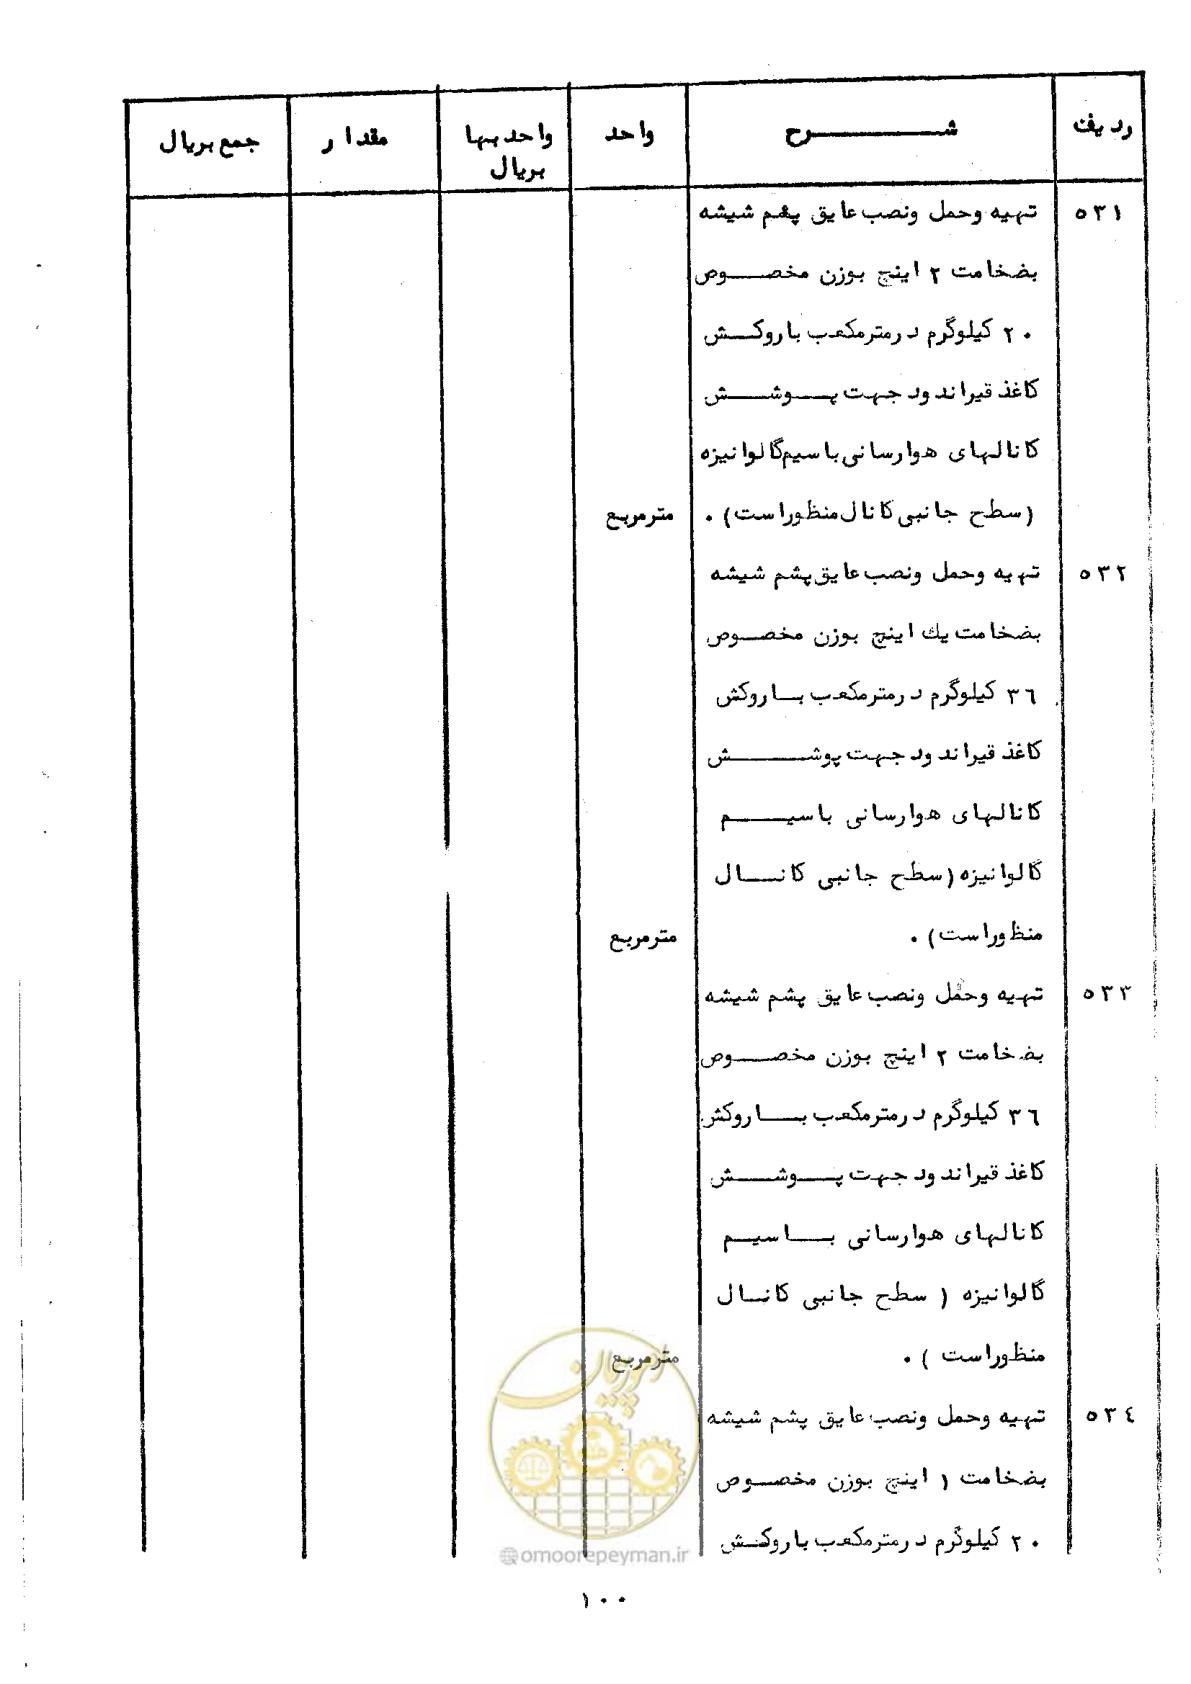 ردیف شرح واحد واحدبها مقدار جمع بریال
بریال
۵۳۱ تهیه وحمل ونصب عایق پشم شیشه
بضخامت ۲ اینچ بوزن مخصوص
۲۰ کیلوگرم درمترمکعب باروکش
کاغذ قیراندود جهت پوشش
کانالهای هوارسانی باسیم گالوانیزه
(سطح جانبی کانال منظوراست) . مترمربع
۵۳۲ تهیه وحمل ونصب عایق پشم شیشه
بضخامت یك اینچ بوزن مخصوص
۳۶ کیلوگرم درمترمکعب باروکش
کاغذ قیراندود جهت پوشش
کانالهای هوارسانی باسیم
گالوانیزه (سطح جانبی کانال
منظوراست) . مترمربع
۵۳۳ تهیه وحمل ونصب عایق پشم شیشه
بضخامت ۲ اینچ بوزن مخصوص
۳۶ کیلوگرم درمترمکعب باروکش
کاغذ قیراندود جهت پوشش
کانالهای هوارسانی باسیم
گالوانیزه ( سطح جانبی کانال
منظوراست ) . مترمربع
امور پیمان
۵۳۴ تهیه وحمل ونصب عایق پشم شیشه
بضخامت ۱ اینچ بوزن مخصوص
۲۰ کیلوگرم درمترمکعب باروکش
@omoorepeyman.ir
۱۰۰